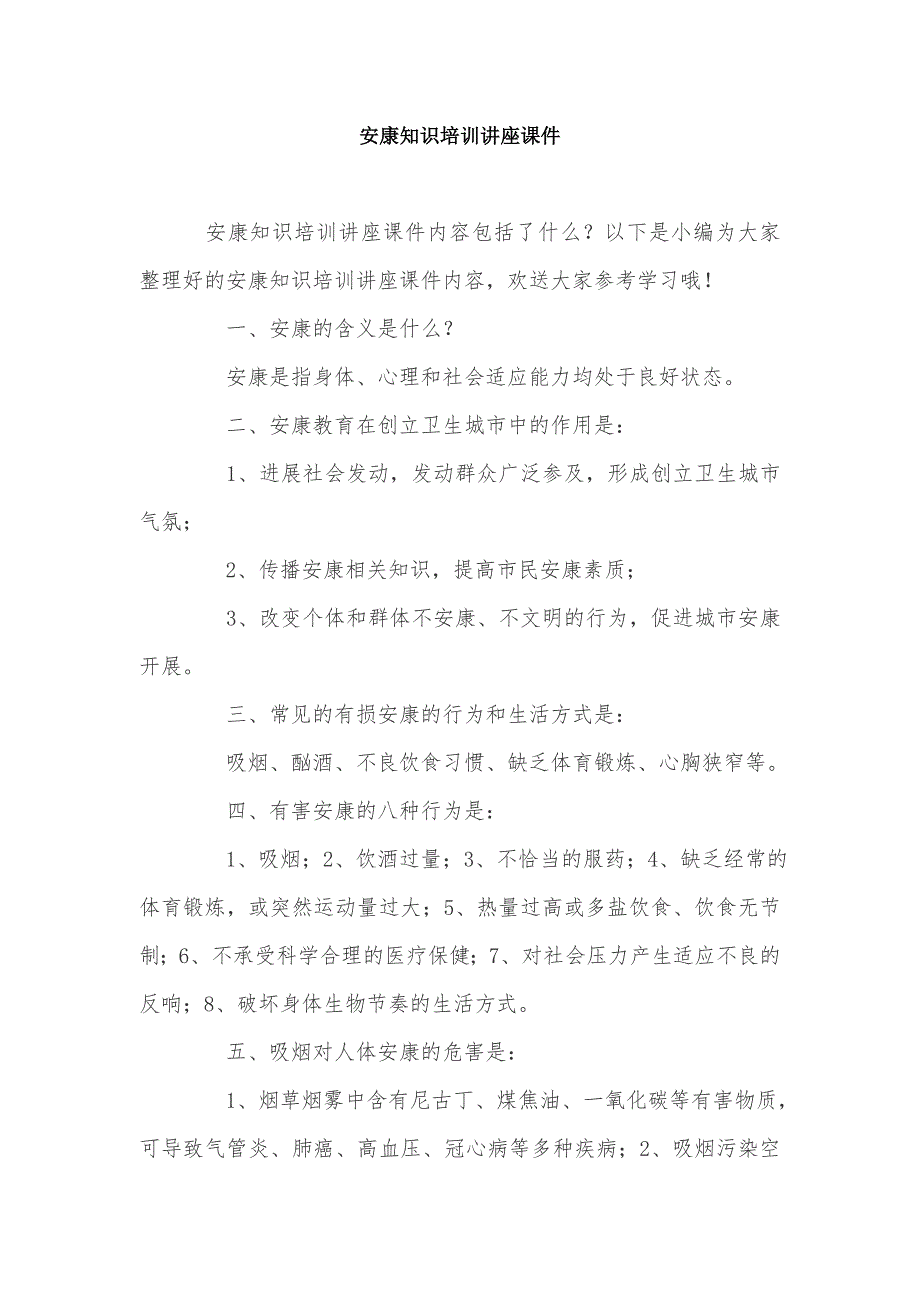 安康知识培训讲座课件
安康知识培训讲座课件内容包括了什么？以下是小编为大家
整理好的安康知识培训讲座课件内容，欢送大家参考学习哦！
一、安康的含义是什么？
安康是指身体、心理和社会适应能力均处于良好状态。
二、安康教育在创立卫生城市中的作用是：
1、进展社会发动，发动群众广泛参及，形成创立卫生城市
气氛；
2、传播安康相关知识，提高市民安康素质；
3、改变个体和群体不安康、不文明的行为，促进城市安康
开展。
三、常见的有损安康的行为和生活方式是：
吸烟、酗酒、不良饮食习惯、缺乏体育锻炼、心胸狭窄等。
四、有害安康的八种行为是：
1、吸烟；2、饮酒过量；3、不恰当的服药；4、缺乏经常的
体育锻炼，或突然运动量过大；5、热量过高或多盐饮食、饮食无节
制；6、不承受科学合理的医疗保健；7、对社会压力产生适应不良的
反响；8、破坏身体生物节奏的生活方式。
五、吸烟对人体安康的危害是：
1、烟草烟雾中含有尼古丁、煤焦油、一氧化碳等有害物质，
可导致气管炎、肺癌、高血压、冠心病等多种疾病；2、吸烟污染空